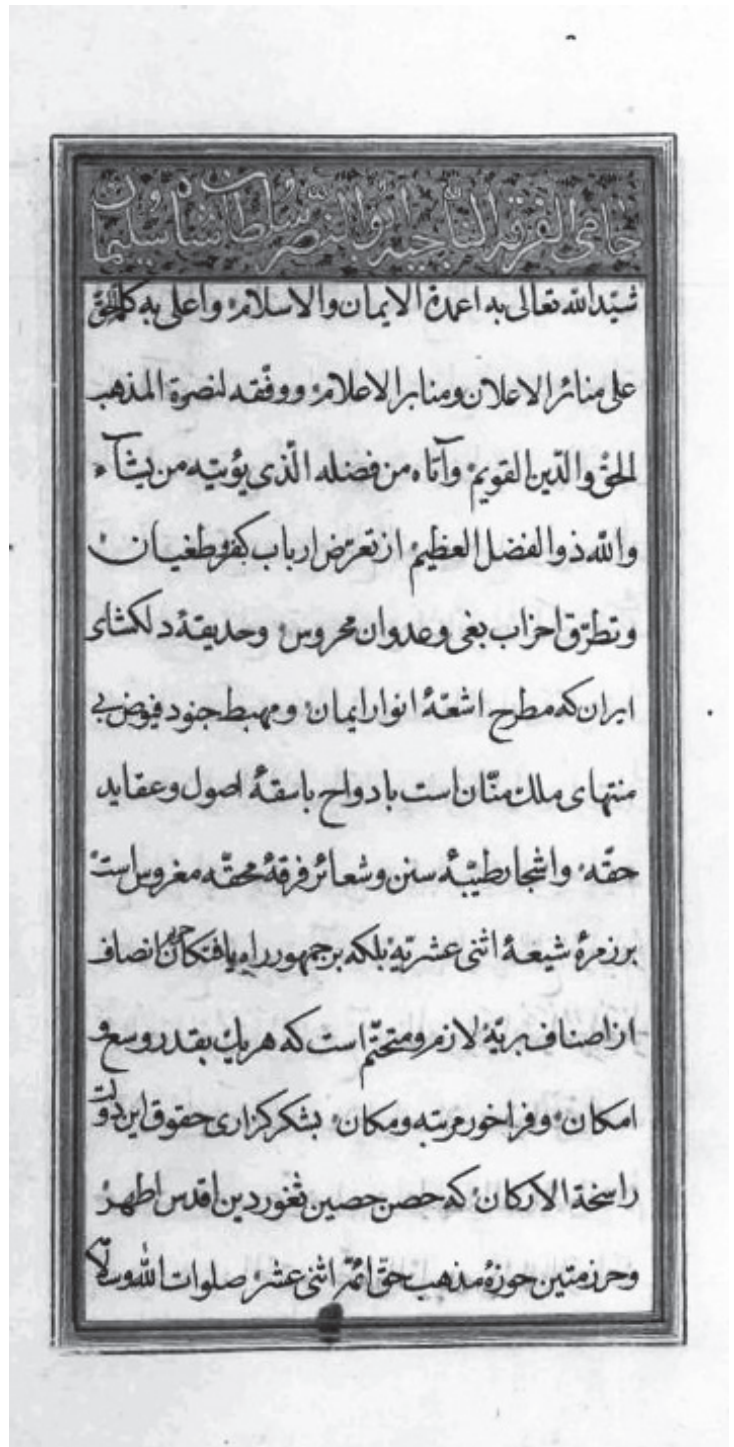 حامی الفرقه الناجیه ابو النصر سلطان شاه سلیمان
شیّد الله تعالی به اعمدة الایمان والاسلام و اعلی به کلمة الحق
علی منائر الاعلان ومنابر الاعلام ووفّقه لنصرة المذهب
الحق والدّین القویم وآتاه من فضله الّذی یؤتیه من یشآء
والله ذو الفضل العظیم از تعرّض ارباب کفر و طغیان
و تطرّق احزاب بغی و عدوان محروس و حدیقهٔ دلکشای
ایران که مطرح اشعّهٔ انوار ایمان و مهبط جنود فیوض بی
منتهای ملک منّان است بادواح باسقهٔ اصول و عقاید
حقّه و اشجار طیّبهٔ سنن و شعائر فرقهٔ محقّه مغروس است
بر زمرهٔ شیعهٔ اثنی عشریّه بلکه بر جمهور راه یافتکان انصاف
از اصناف بریّه لازم و متحتّم است که هر یک بقدر وسع و
امکان و فراخور مرتبه و مکان بشکرکزاری حقوق این دولت
راسخة الارکان که حصن حصین ثغور دین اقدس اطهر
و حرز متین حوزهٔ مذهب حقّ ائمّهٔ اثنی عشر صلوات الله و سلا